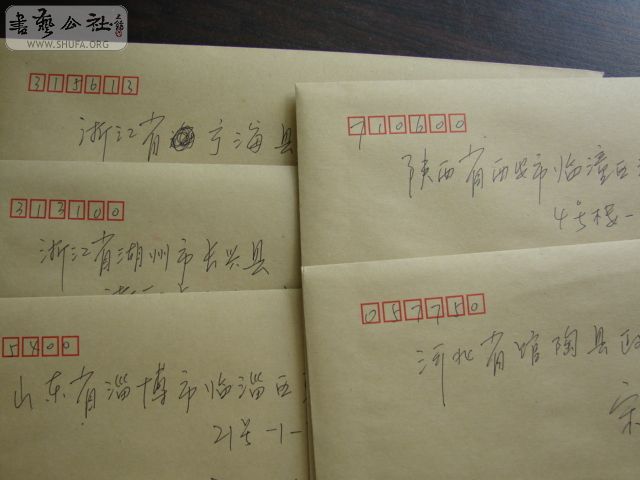 書藝公社
WWW.SHUFA.ORG
315613
浙江省宁海县
313100
浙江省湖州市长兴县
5400
山东省淄博市临淄区
21号-1-
710600
陕西省西安市临潼区
4号楼-
057750
河北省馆陶县政
宋